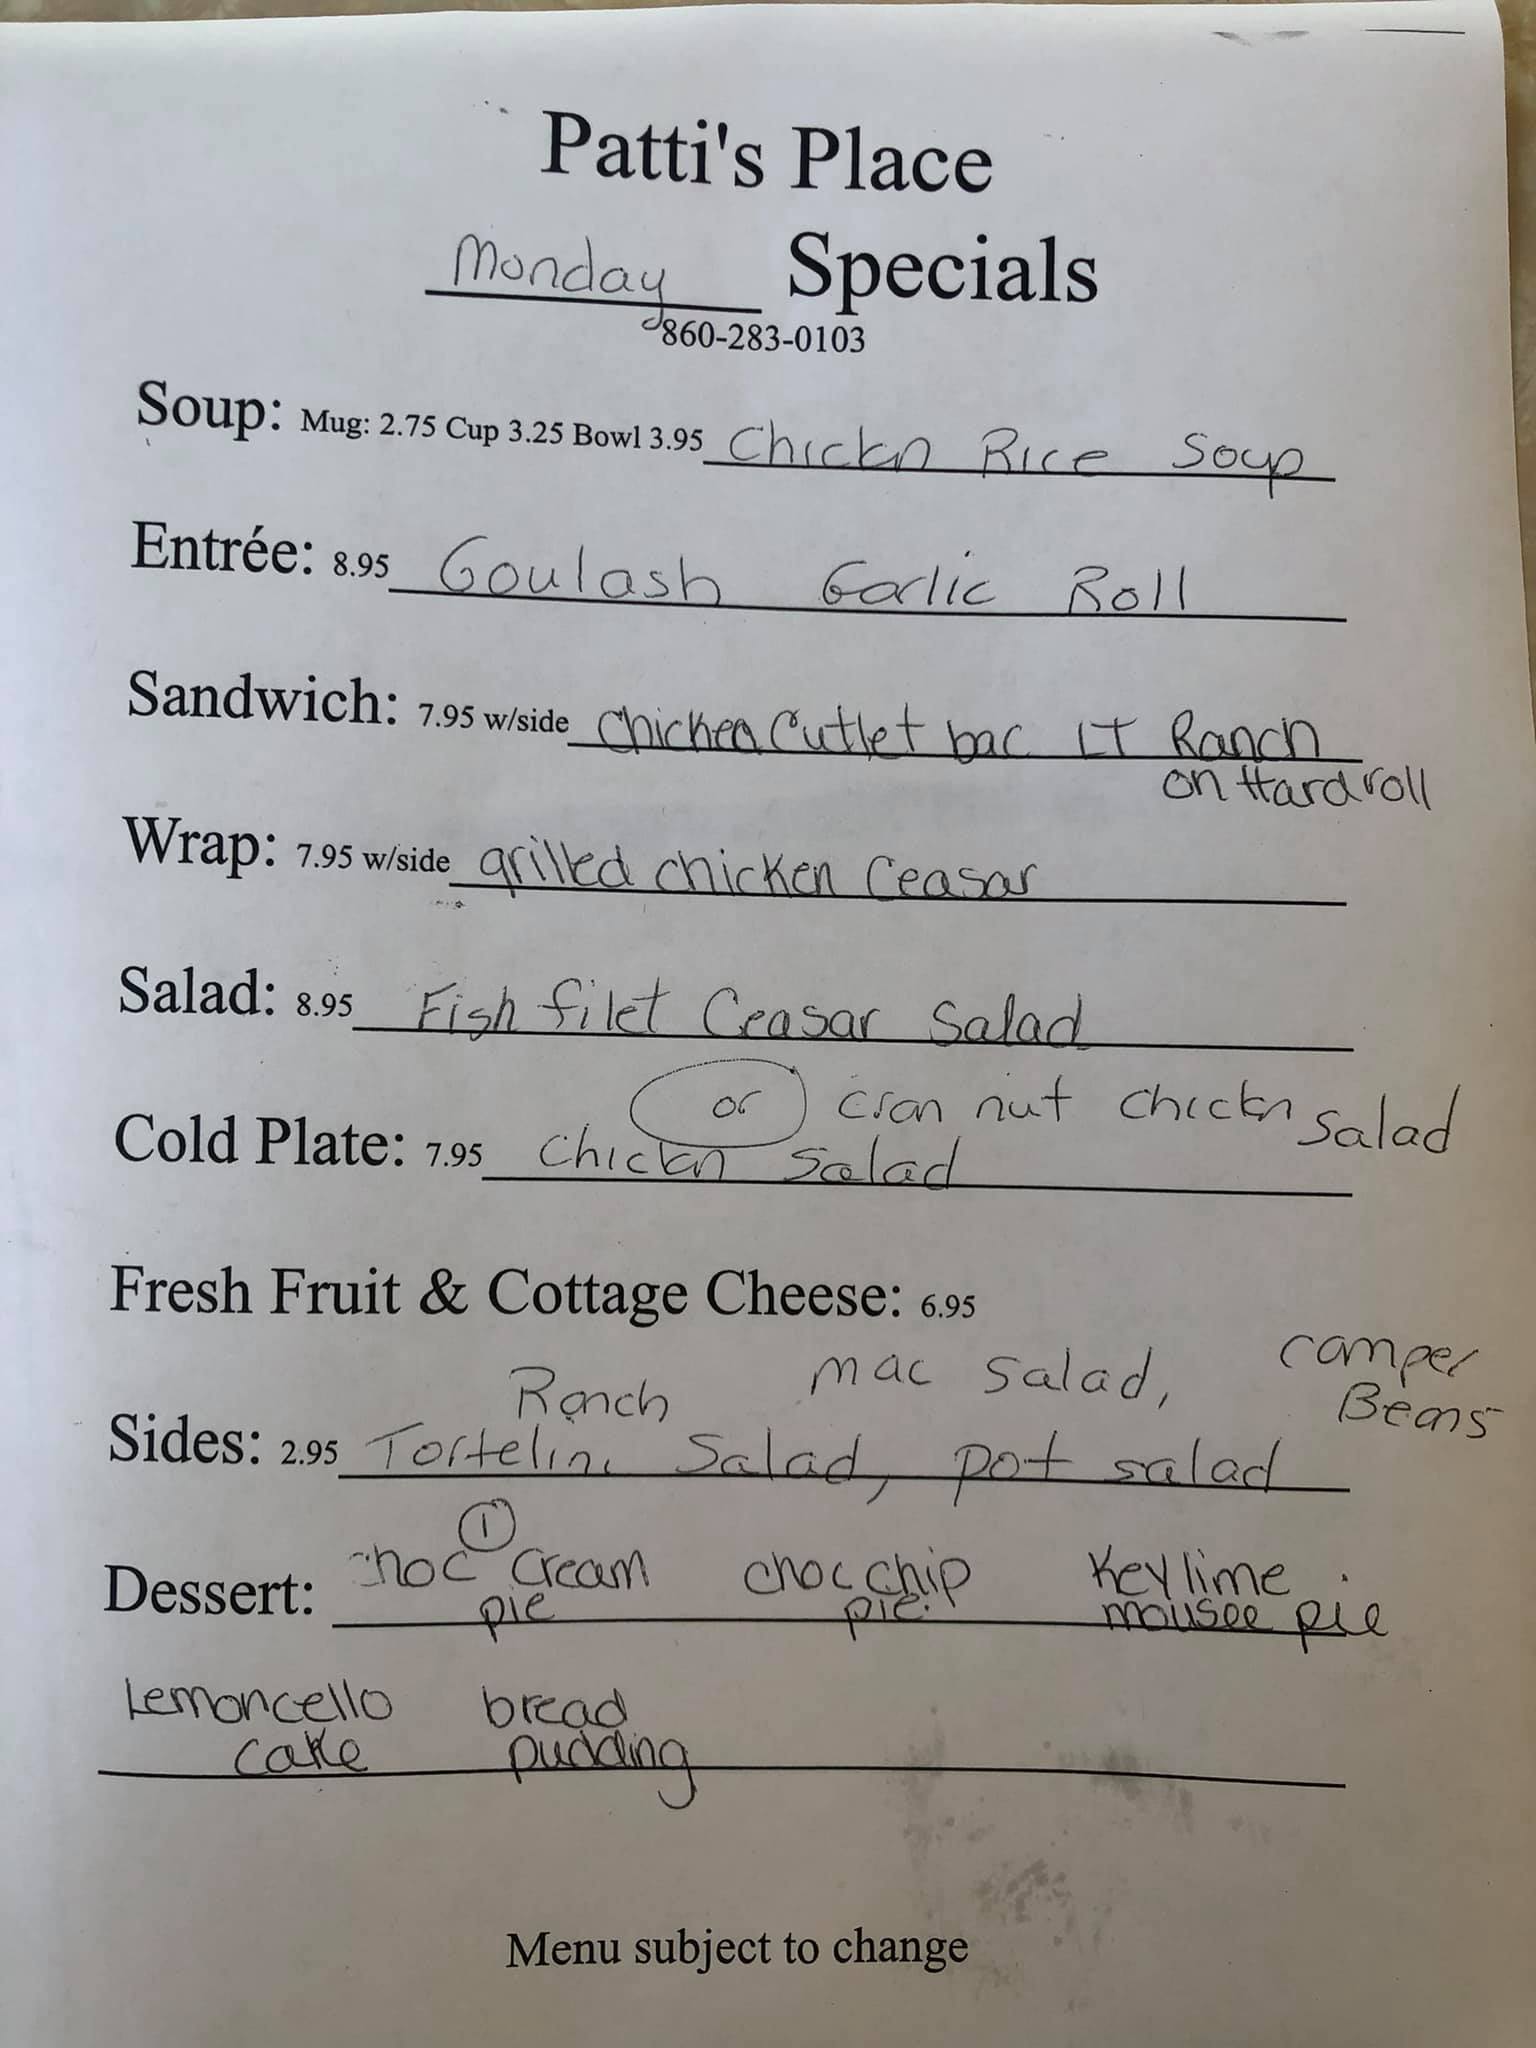 Patti's Place
Monday Specials
860-283-0103
Soup: Mug: 2.75 Cup 3.25 Bowl 3.95 Chickn Rice Soup
Entrée: 8.95 Goulash Garlic Roll
Sandwich: 7.95 w/side Chicken Cutlet bac LT Ranch
on Hard roll
Wrap: 7.95 w/side grilled chicken Ceasar
Salad: 8.95 Fish filet Ceasar Salad
or cran nut chickn salad
Cold Plate: 7.95 Chickn Salad
Fresh Fruit & Cottage Cheese: 6.95
Ranch mac salad, camper
Beans
Sides: 2.95 Tortelini Salad, pot salad
1
Dessert: choc cream choc chip Key lime
pie pie. mousee pie
Lemoncello bread
cake pudding
Menu subject to change